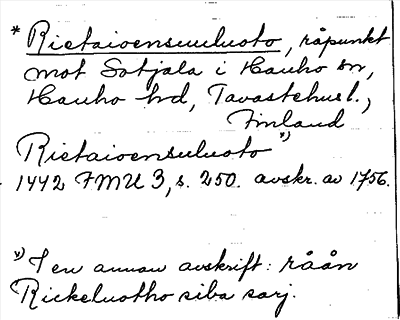 * Rietaioensuuluoto, råpunkt
mot Sotjala i Hauho sn,
Hauho hd, Tavastehusl.,
Finland
Rietaioensuluoto *)
1442 FMU 3, s. 250. avskr. av 1756.
*) I en annan avskrift: råån
Rickeluotho siba sarj.